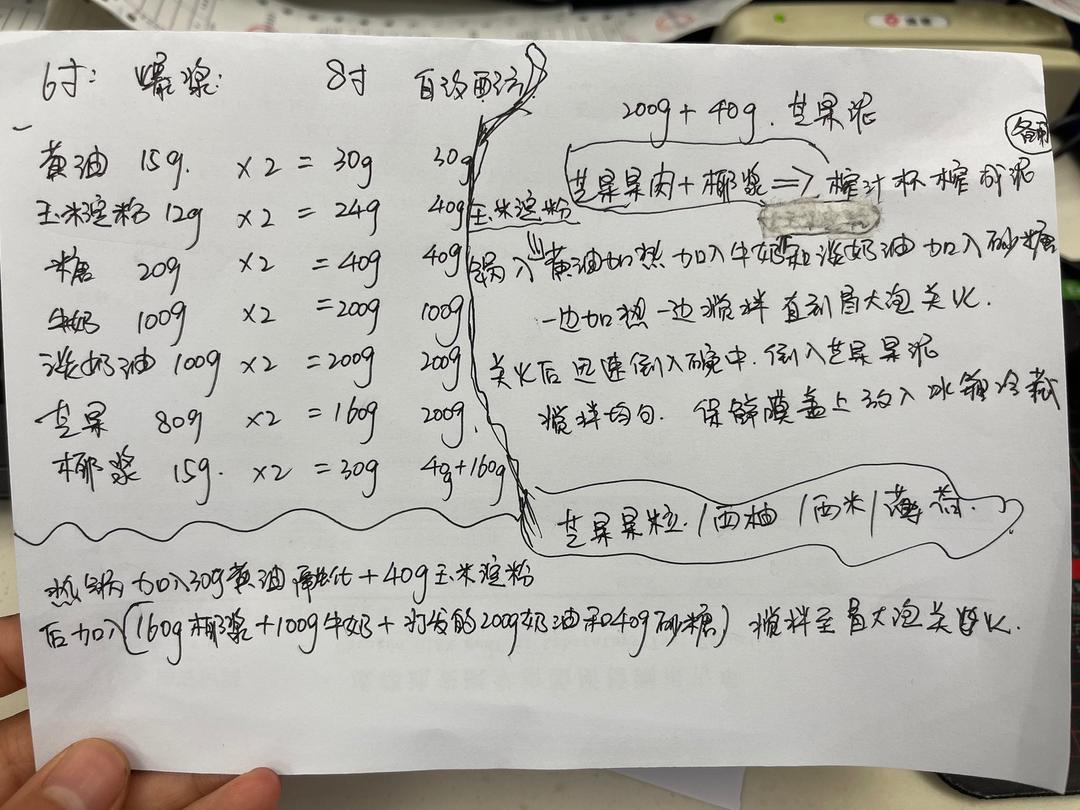 6寸: 爆浆: 8寸 自改配方
黄油 15g. ×2 = 30g 30g
玉米淀粉 12g ×2 = 24g 40g
糖 20g ×2 = 40g 40g
牛奶 100g ×2 = 200g 100g
淡奶油 100g ×2 = 200g 200g
芒果 80g ×2 = 160g 200g.
椰浆 15g. ×2 = 30g 40g+160g
200g + 40g. 芒果泥
备用
芒果果肉+椰浆 => 榨汁杯榨成泥
玉米淀粉
锅入黄油加热加入牛奶和淡奶油加入砂糖
一边加热一边搅拌直到冒大泡关火.
关火后迅速倒入碗中. 倒入芒果果泥
搅拌均匀. 保鲜膜盖上放入冰箱冷藏
芒果果粒. / 西柚 / 西米 / 薄荷.
热锅加入30g黄油融化+40g玉米淀粉
后加入(160g椰浆+100g牛奶+打发的200g奶油和40g砂糖) 搅拌至冒大泡关火.